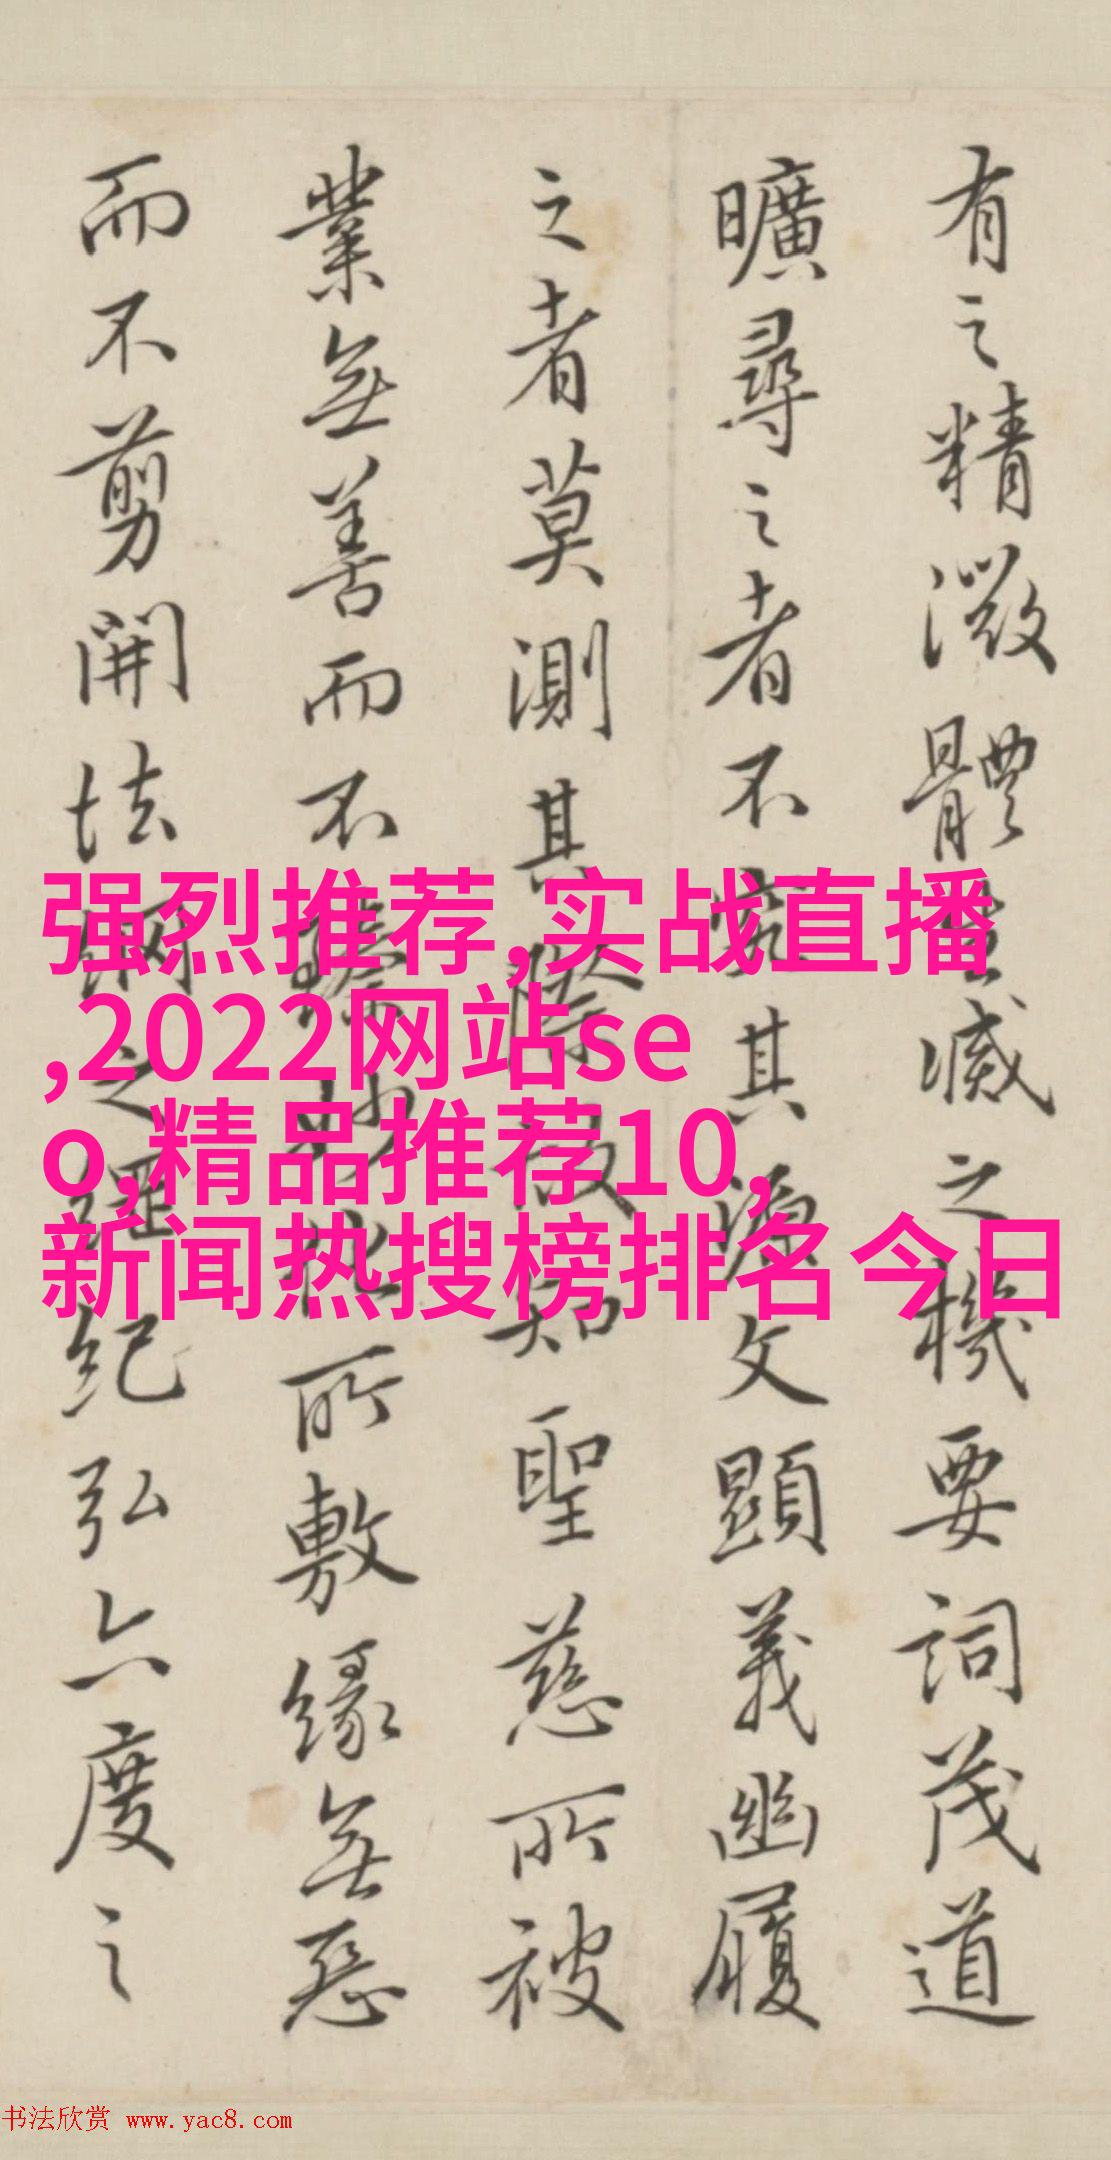 有之精微體生滅之機要詞茂道
曠尋之者不究其源文顯義幽履
之者莫測其際故知聖慈所被
業無善而不臻妙化所敷緣無惡
而不剪開法網之綱紀弘六度之
强烈推荐,实战直播
,2022网站se
o,精品推荐10,
新闻热搜榜排名今日
书法欣赏 www.yac8.com